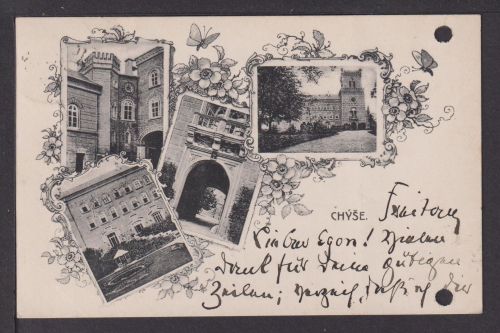 CHÝŠE.
Freitag
Lieber Egon! Vielen
Dank für Deine gütigen
Zeilen; verzeih, daß ich Dir